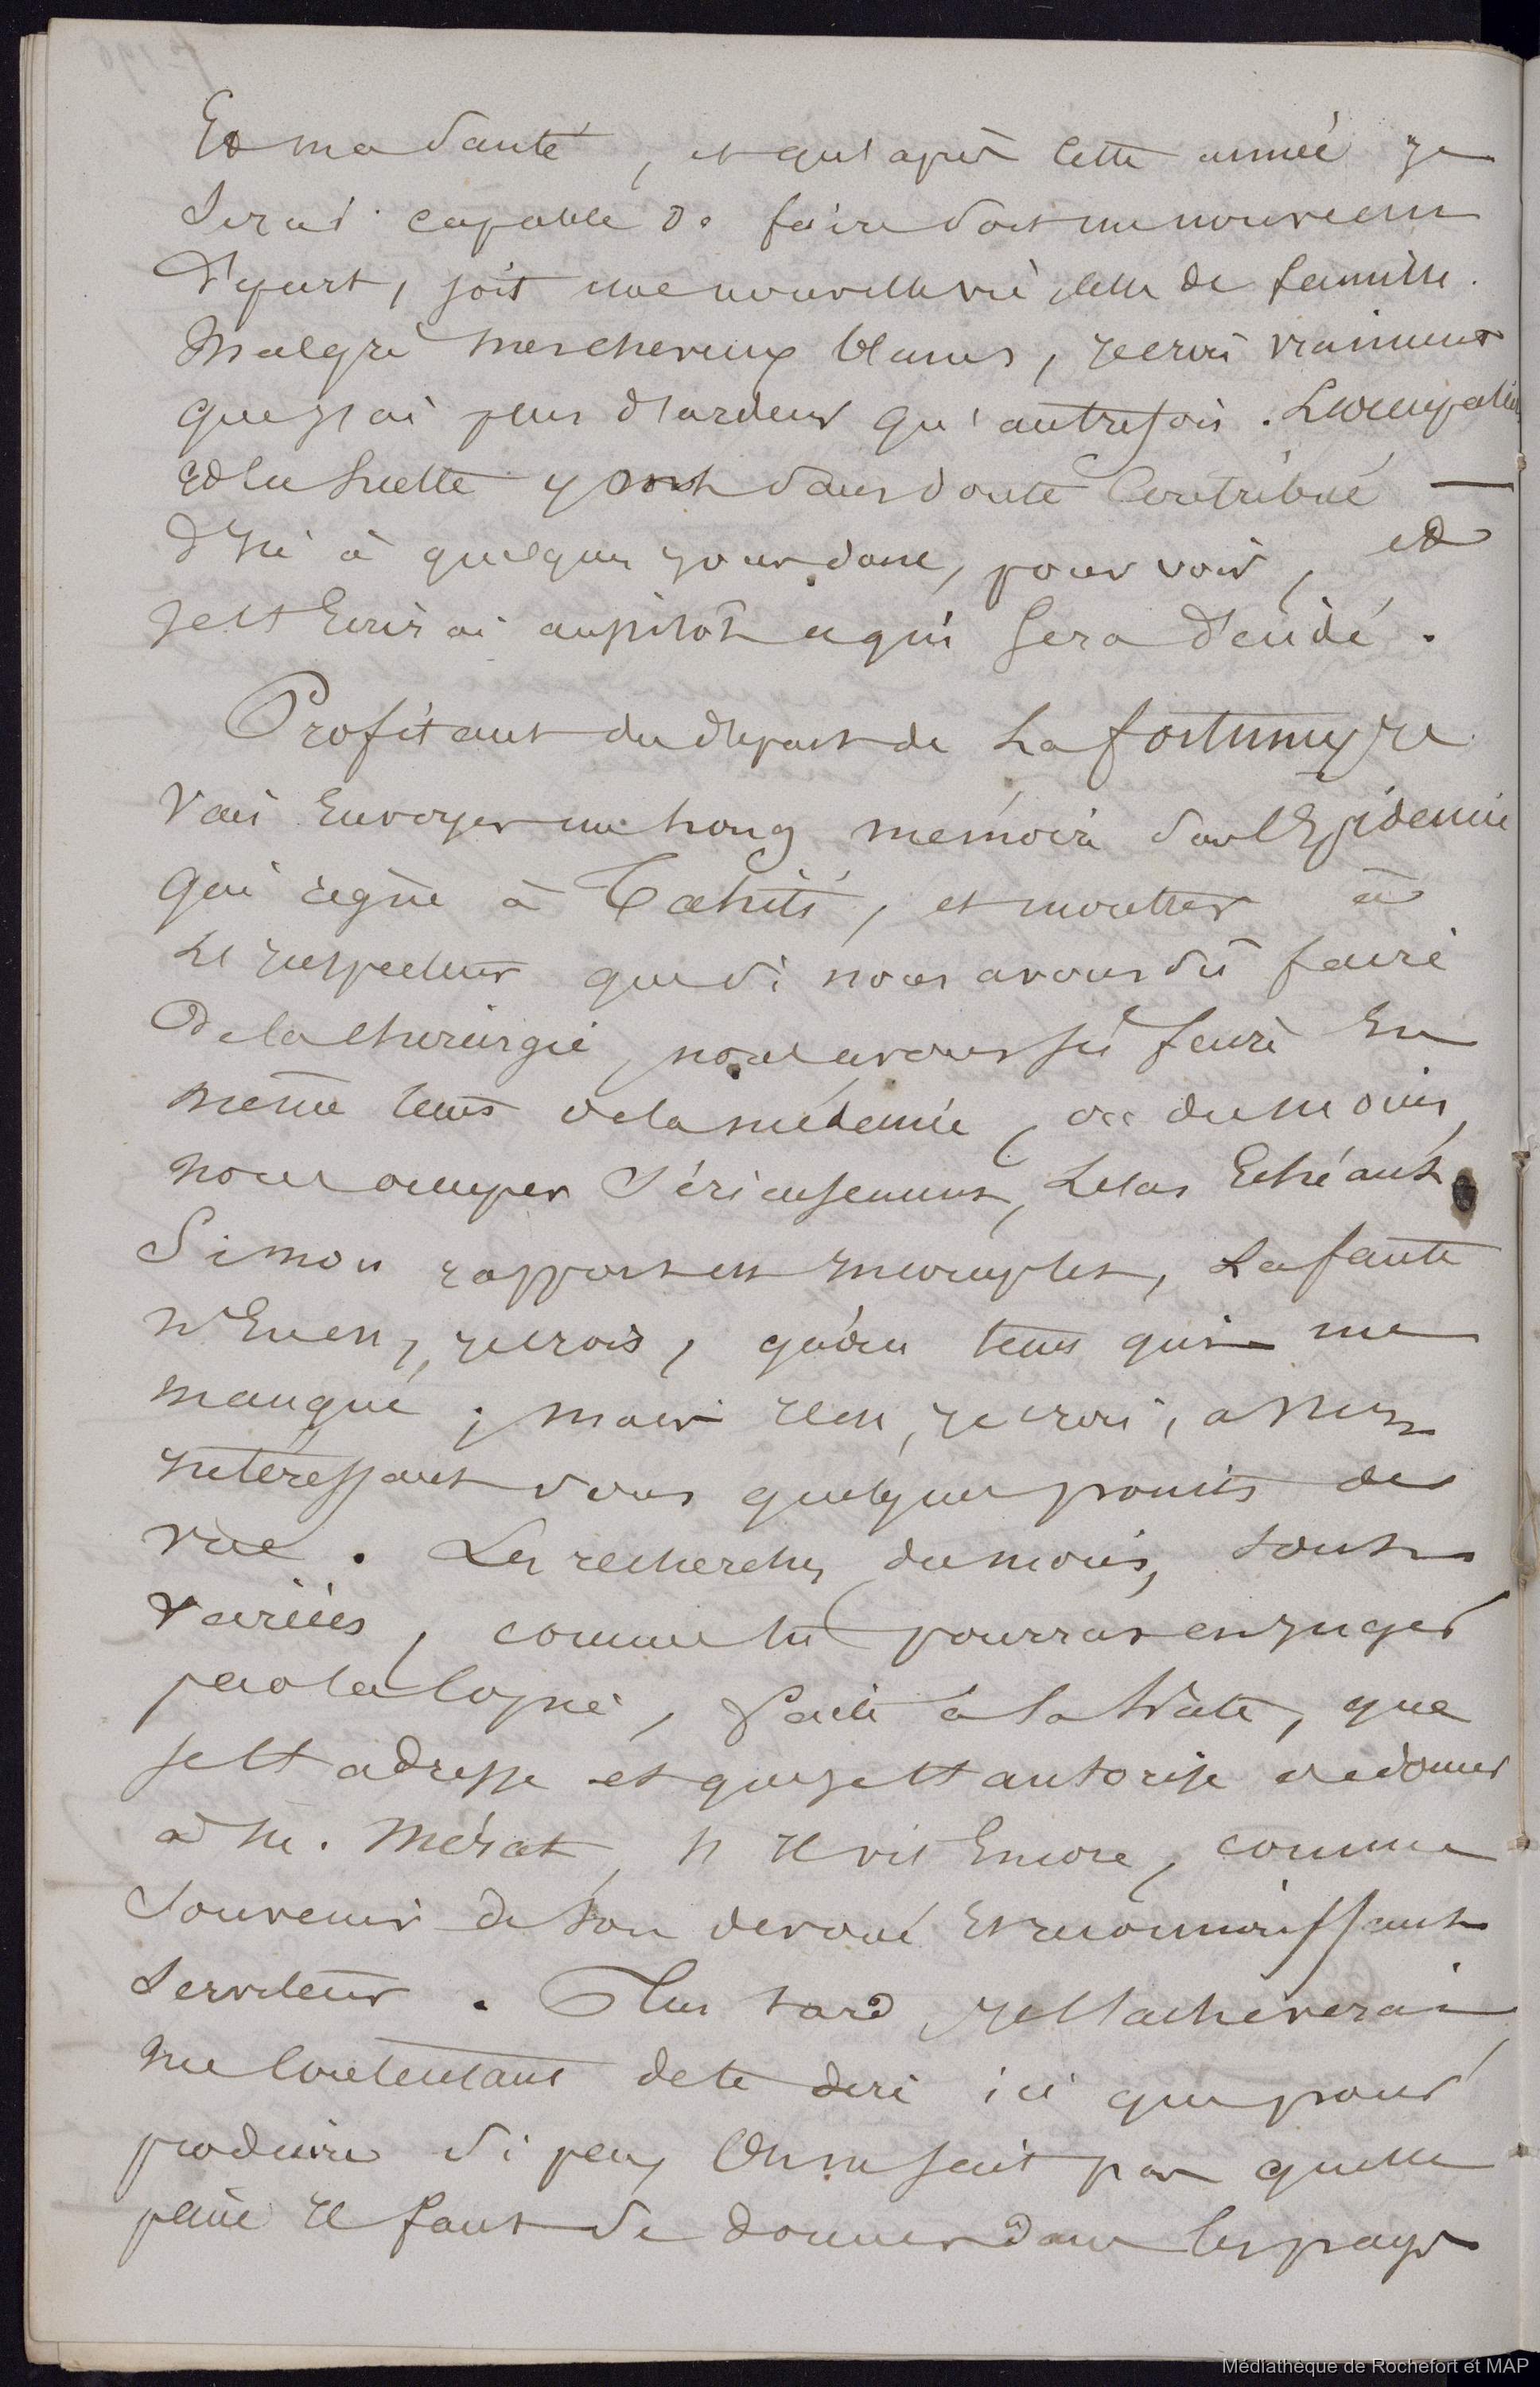 Et ma santé, et qu'après cette année je
serai capable de faire soit un nouveau
départ, soit une nouvelle vie, celle de famille.
Malgré mes cheveux blancs, je crois vraiment
que j'ai plus d'ardeur qu'autrefois. L'occupation
et la lutte y ont sans doute contribué —
D'ici à quelques jours donc, pour voir, et
je t'écrirai aussitôt ce qui sera décidé.
Profitant du départ de La fortune, je
vais envoyer un long mémoire sur l'Epidémie
qui règne à Tahiti, et montrer à
L'Inspecteur que si nous avons dû faire
de la chirurgie, nous avons sû faire en
même tems de la médecine, ou du moins,
nous occuper sérieusement, le cas échéant.
Si mon rapport est incomplet, la faute
n'en est, je crois, qu'au tems qui me
manque; mais il est, je crois, assez
intéressant sous quelques points de
vue. Les recherches, du moins, sont
variées, comme tu pourras en juger
par la copie, faite à la hâte, que
je t'adresse et que je t'autorise à donner
à M. Mérat, s'il vit encore, comme
souvenir de son dévoué et reconnaissant
serviteur. Plus tard je l'achèverai
me contentant de te dire ici que pour
produire si peu, on ne sait pas quelle
peine il faut se donner dans les pays
Médiathèque de Rochefort et MAP